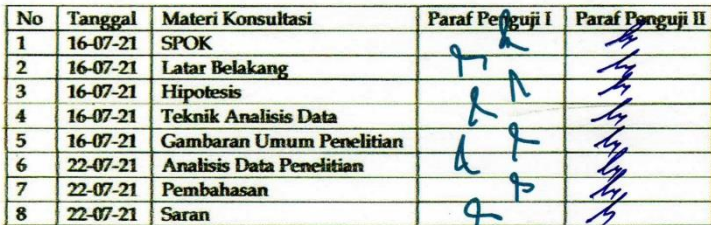 No Tanggal Materi Konsultasi Paraf Penguji I Paraf Penguji II
1 16-07-21 SPOK
2 16-07-21 Latar Belakang
3 16-07-21 Hipotesis
4 16-07-21 Teknik Analisis Data
5 16-07-21 Gambaran Umum Penelitian
6 22-07-21 Analisis Data Penelitian
7 22-07-21 Pembahasan
8 22-07-21 Saran